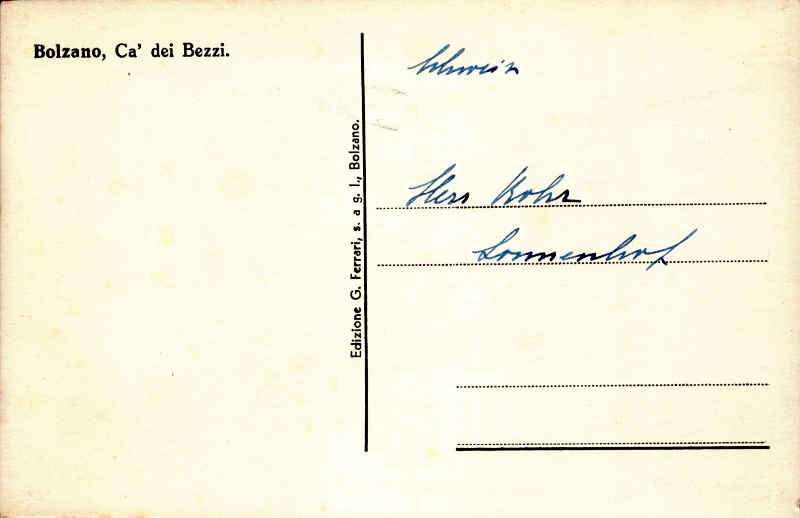 Bolzano, Ca' dei Bezzi.
Edizione G. Ferrari, s. a g. l., Bolzano.
Schweiz
Herr Rohr
Sonnenhof